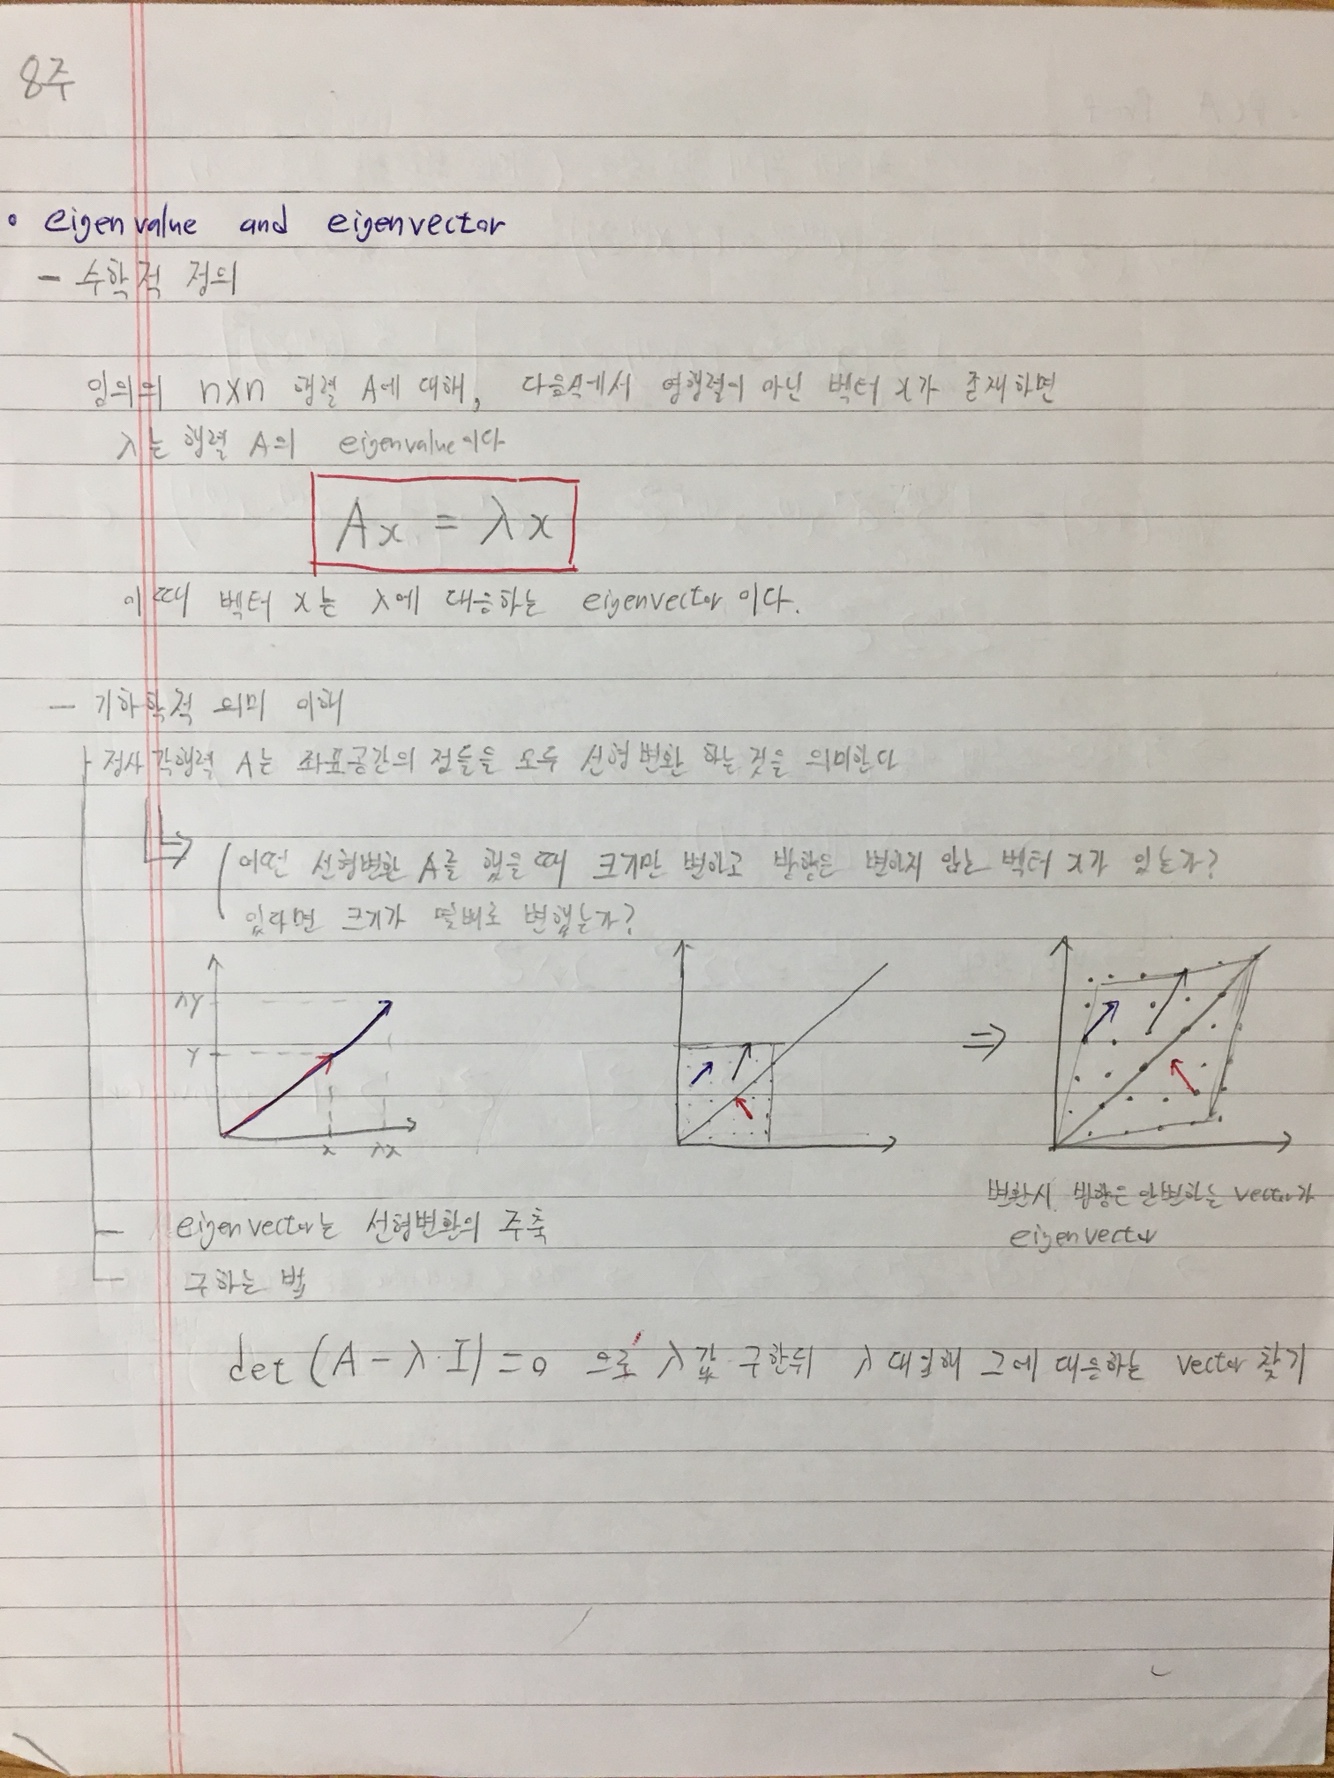 8주
• eigenvalue and eigenvector
- 수학적 정의
임의의 n×n 행렬 A에 대해, 다음식에서 영행렬이 아닌 벡터 x가 존재하면
λ는 행렬 A의 eigenvalue이다
Ax = λx
이 때 벡터 x는 λ에 대응하는 eigenvector 이다.
- 기하학적 의미 이해
정사각행렬 A는 좌표공간의 점들을 모두 선형변환 하는 것을 의미한다
⇒ 어떤 선형변환 A를 했을 때 크기만 변하고 방향은 변하지 않는 벡터 x가 있는가?
있다면 크기가 몇배로 변했는가?
λy
y
x λx
⇒
변환시 방향은 안변하는 vector가
eigenvector
eigenvector는 선형변환의 주축
구하는 법
det (A - λ·I) = 0 으로 λ값 구한뒤 λ 대입해 그에 대응하는 vector 찾기